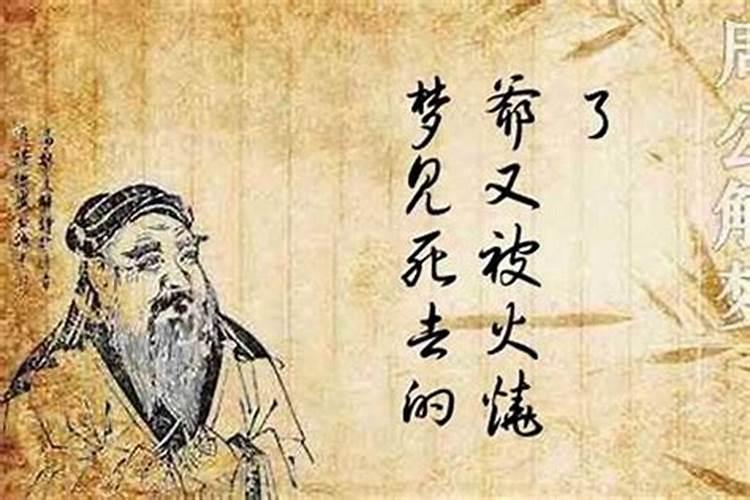 梦见死去的
爷又被火烧
了
周公解梦